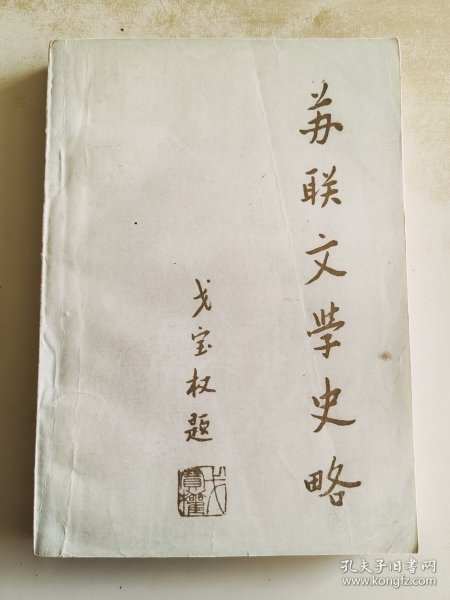 苏联文学史略
戈宝权题
戈寶權
孔夫子旧书网
www.kongfz.com